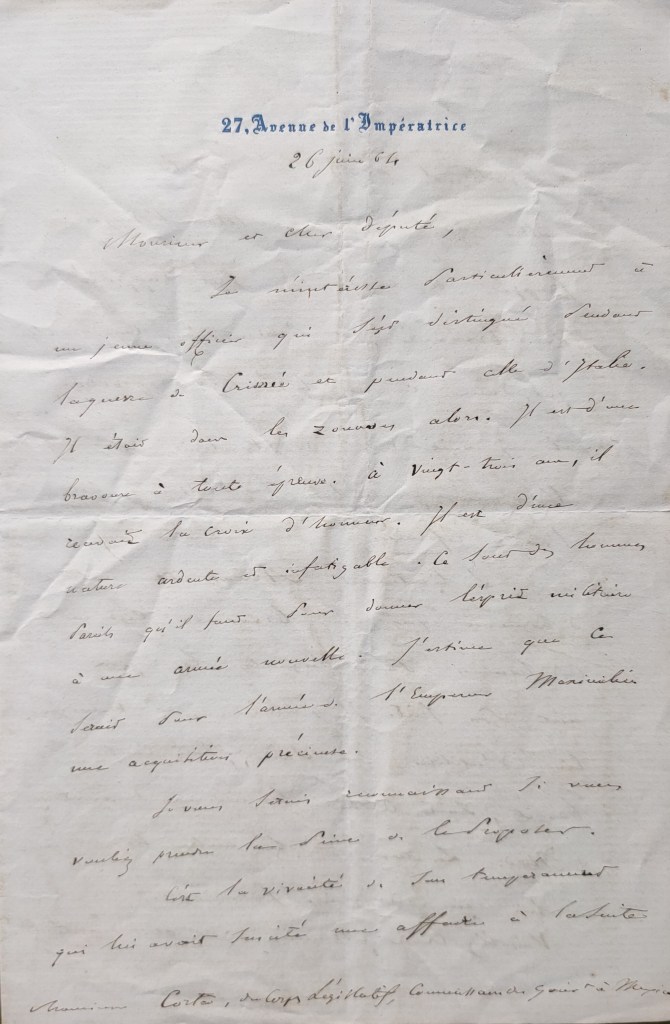 27, Avenue de l'Impératrice
26 juin 64
Monsieur et cher député,
Je m'intéresse particulièrement à
un jeune officier qui s'est distingué pendant
la guerre de Crimée et pendant celle d'Italie.
Il était dans les zouaves alors. Il est d'une
bravoure à toute épreuve. à vingt-trois ans, il
recevait la croix d'honneur. Il est d'une
nature ardente et infatigable. Ce sont des hommes
pareils qu'il faut pour donner l'esprit militaire
à une armée nouvelle. J'estime que ce
serait pour l'armée de l'Empereur Maximilien
une acquisition précieuse.
Je vous serais reconnaissant si vous
vouliez prendre la peine de le proposer.
C'est la vivacité de son tempérament
qui lui avait suscité une affaire à la suite
Monsieur Corta, du Corps Législatif, Commissaire du Gouvt à Mexico